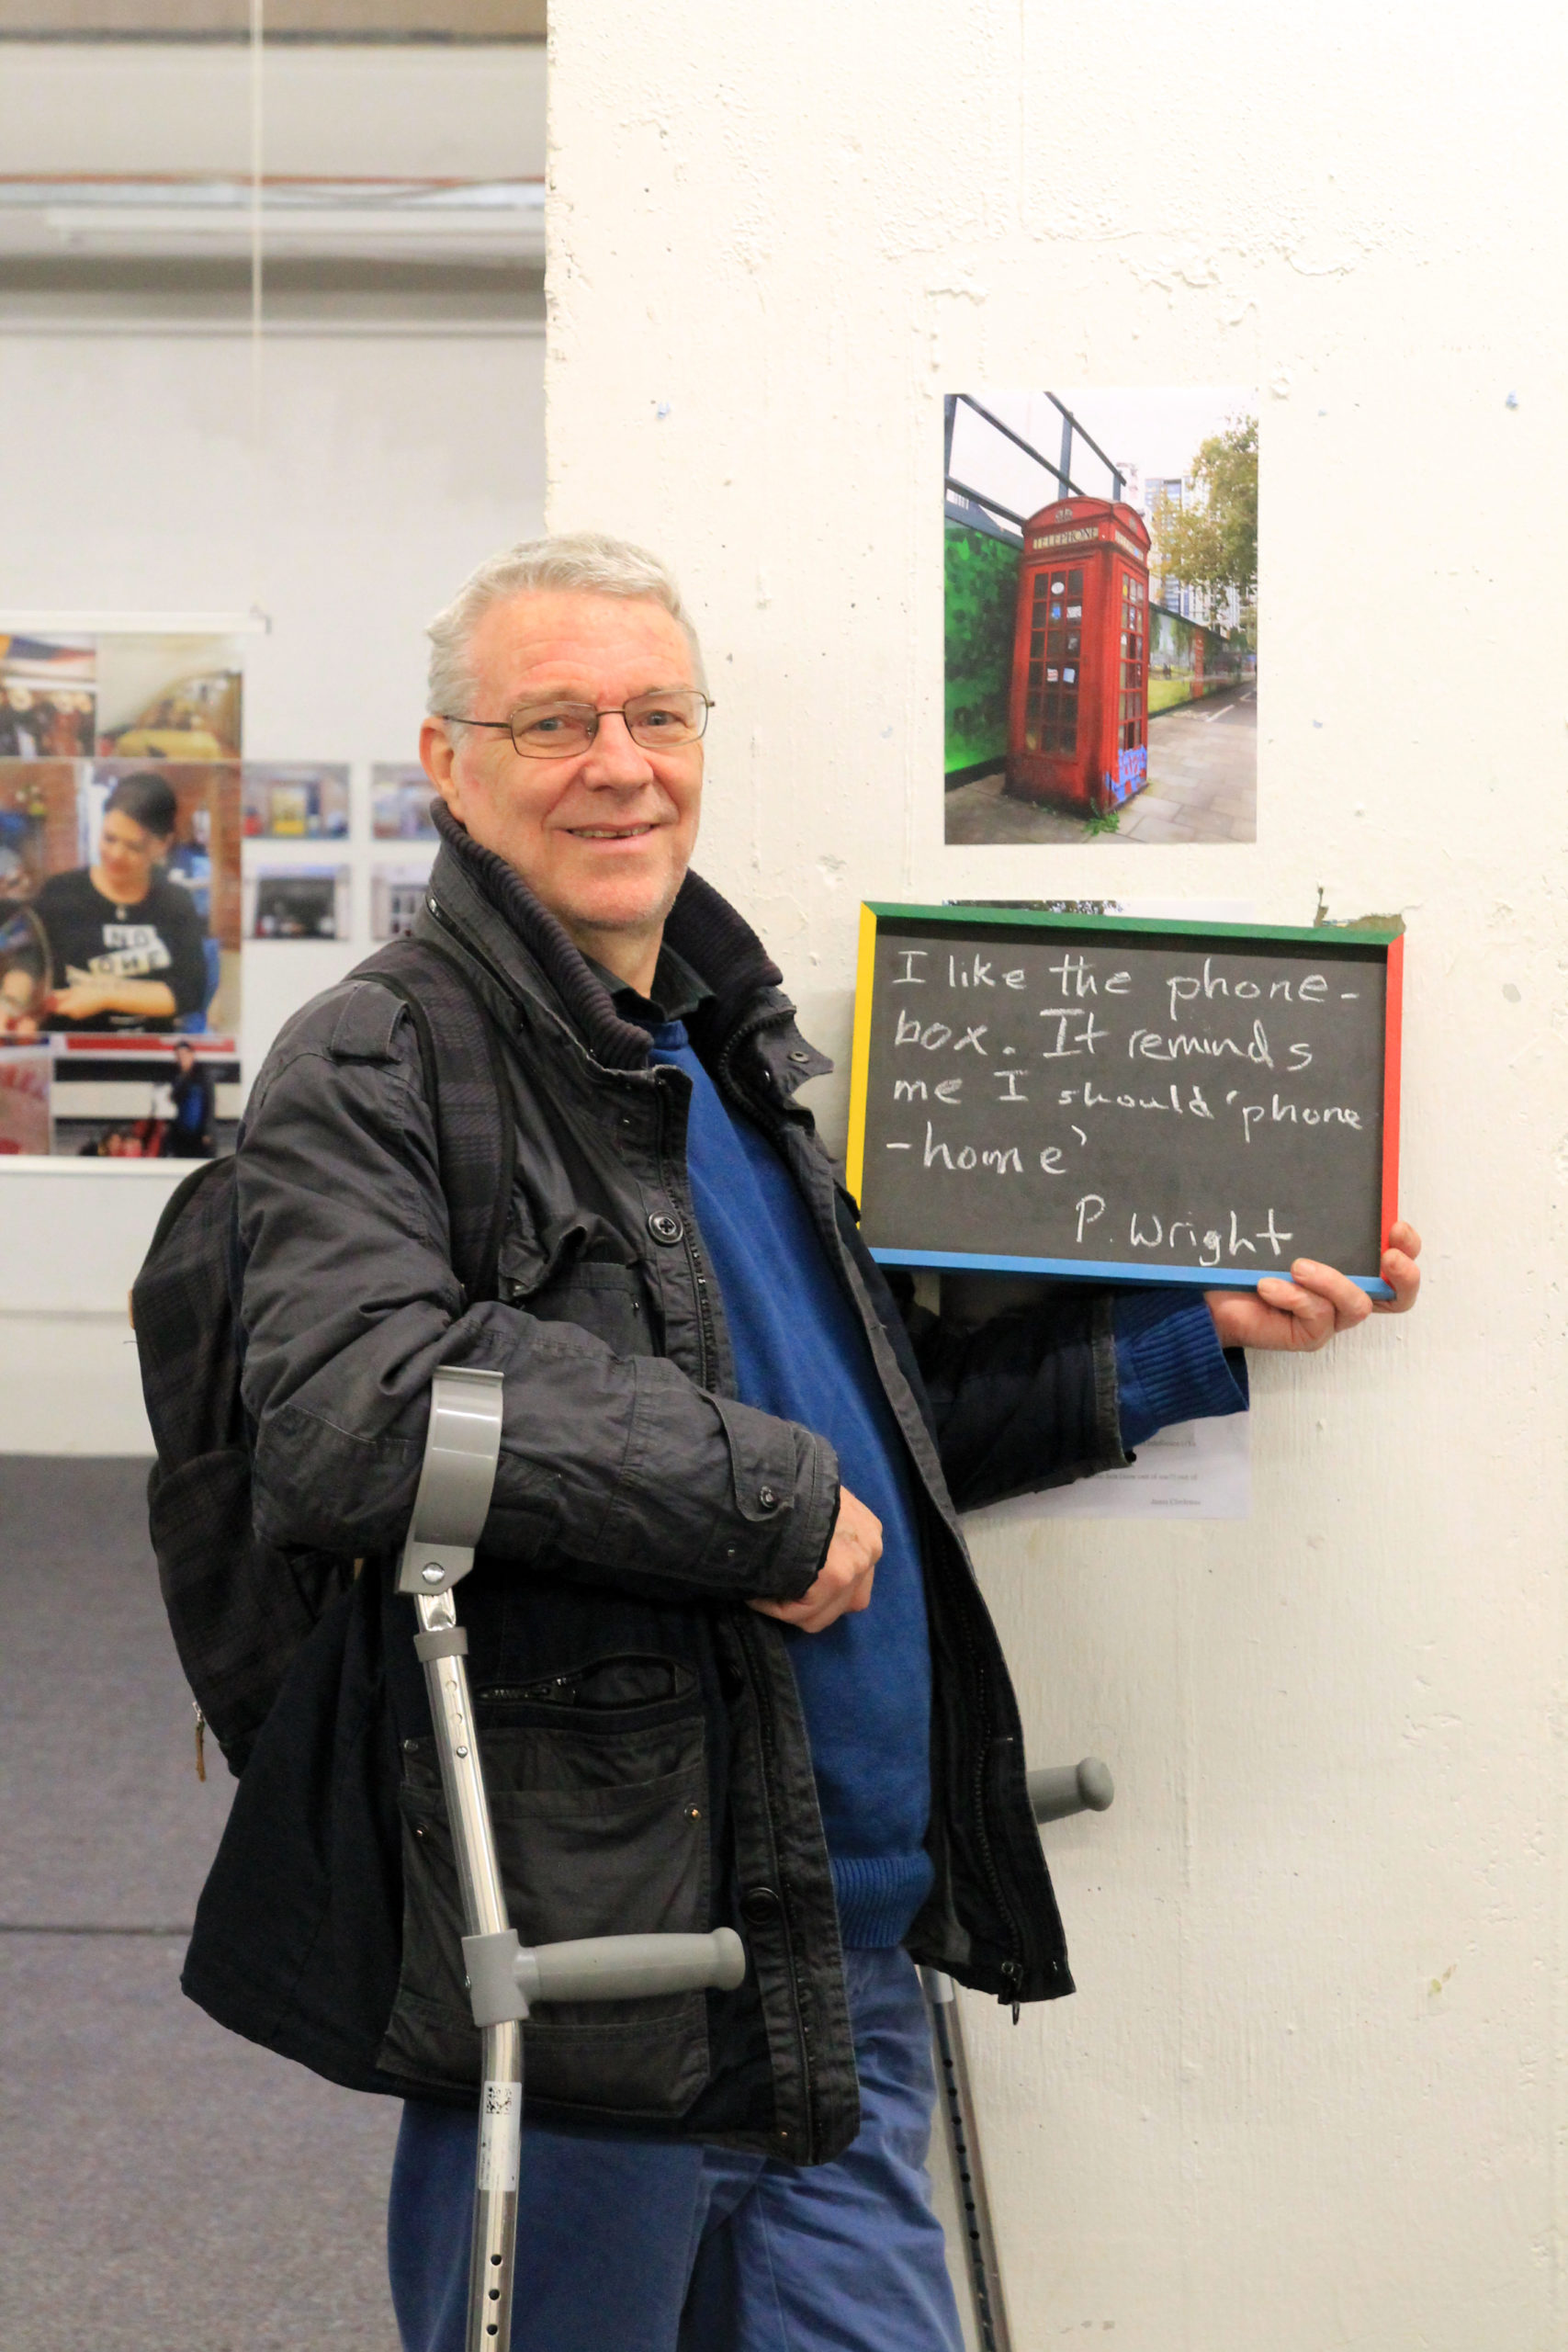 TELEPHONE
I like the phone-
box. It reminds
me I should 'phone
-home'
P. Wright
NO
ONE